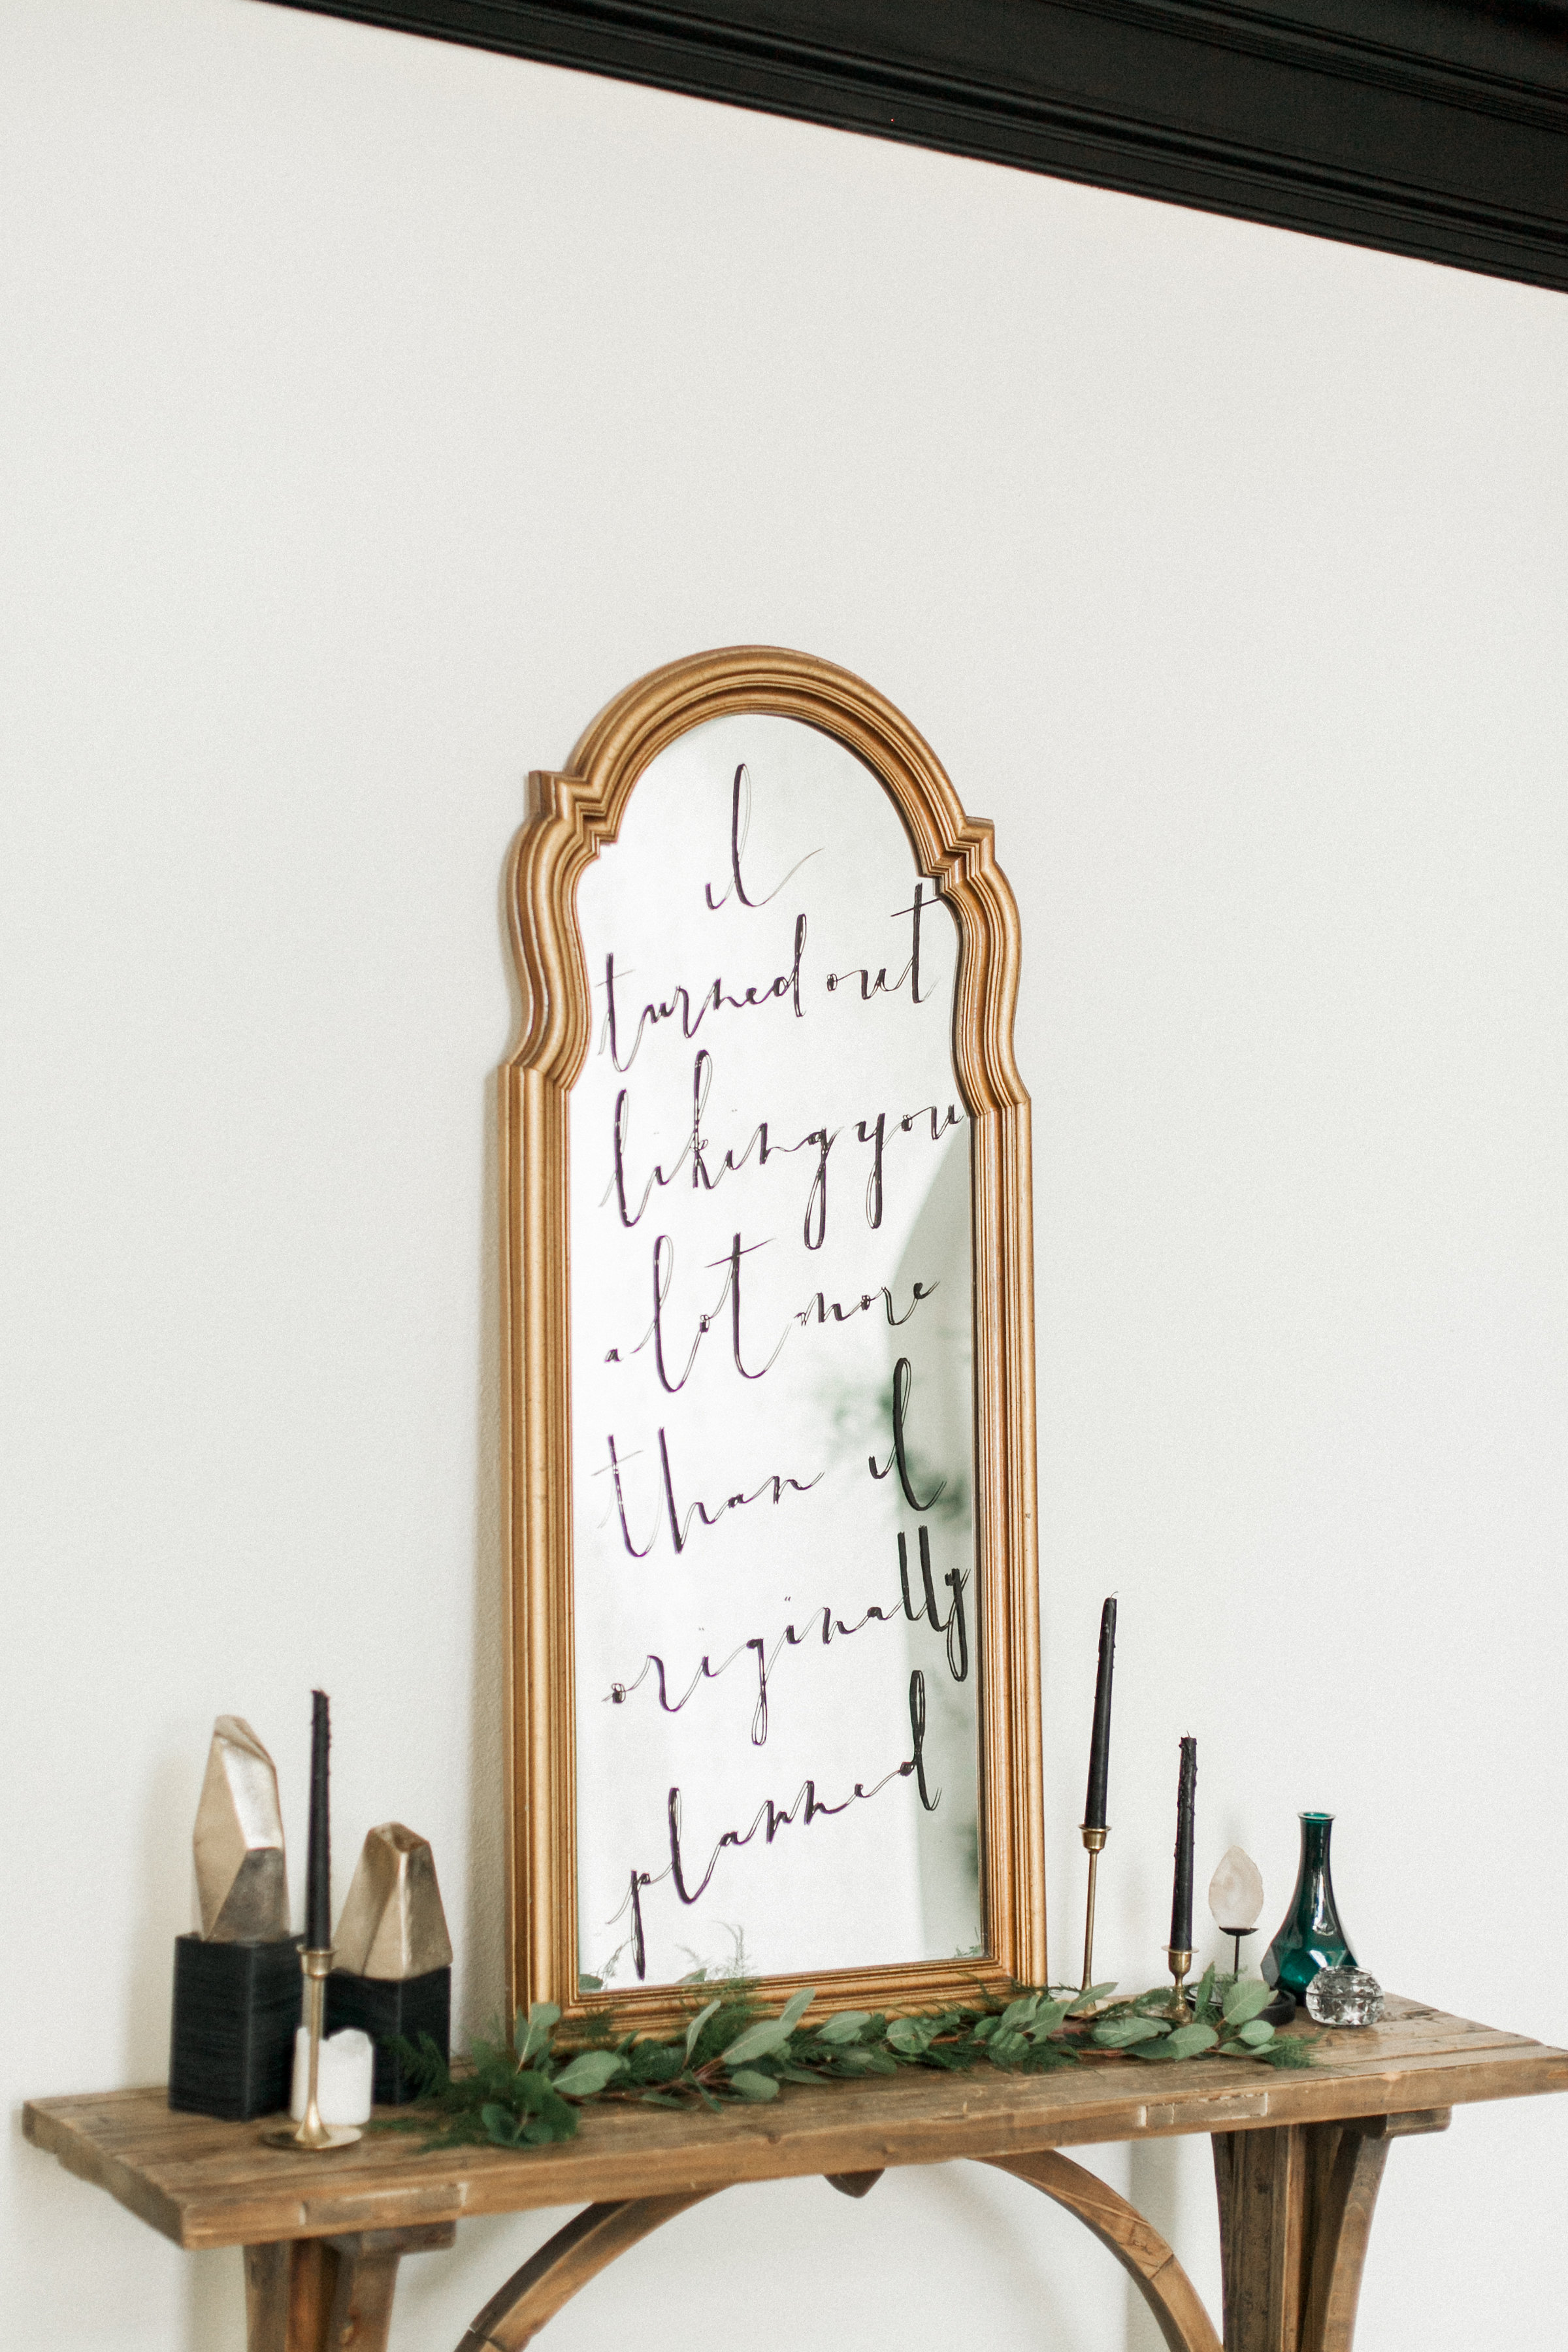 I
turned out
liking you
a lot more
than I
originally
planned